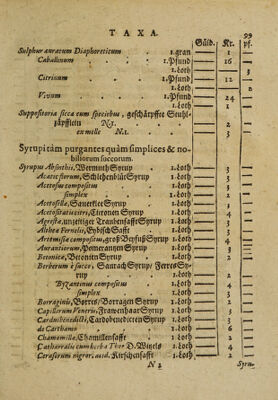 TAXA. 99
Güld. Kr. pf.
Sulphur auratum Diaphoreticum 1.gran 1
Caballinum 1.Pfund 16
1.Loth 3
Citrinum 1.Pfund 12
1.Loth 2
Vivum 1.Pfund 24
1.Loth 1
Suppositoria sicca cum speciebus, geschärpffte Stuhl-
zäpfflein N.1. 2
ex melle N.1. 3
Syrupi tàm purgantes quàm simplices & no-
biliorum succorum.
Syrupus Absinthii, Wermuth Syrup 1.Loth 3
Acaciæ florum, Schlehenblüt Syrup 1.Loth
Acetosus compositus 1.Loth
simplex 1.Loth 2
Acetosellæ, Saurklee Syrup 1.Loth
Acetositatis citri, Citronen Syrup 1.Loth 4
Agrestæ, unzeitiger Traubensafft Syrup 1.Loth
Altheæ Fernelii, Eybisch Safft 1.Loth
Artemisiæ compositus, groß Beyfuß Syrup 1.Loth
Aurantiorum, Pomerantzen Syrup 1.Loth
Betonicæ, Betonien Syrup 1.Loth
Berberum è succo, Saurach Syrup/ Ferres Sy-
rup 1.Loth
Byzantinus compositus 1.Loth
simplex 1.Loth
Borraginis, Borres/ Borragen Syrup 1.Loth
Capillorum Veneris, Frawenhaar Syrup 1.Loth
Cardui benedicti, Cardobenedicten Syrup 1.Loth
de Carthamo 1.Loth 6
Chamomilla, Chamillensafft 1.Loth 2
1.Loth 4
Cerasorum nigror. acid. Kirschensafft 1.Loth 2
N 2 Syru-